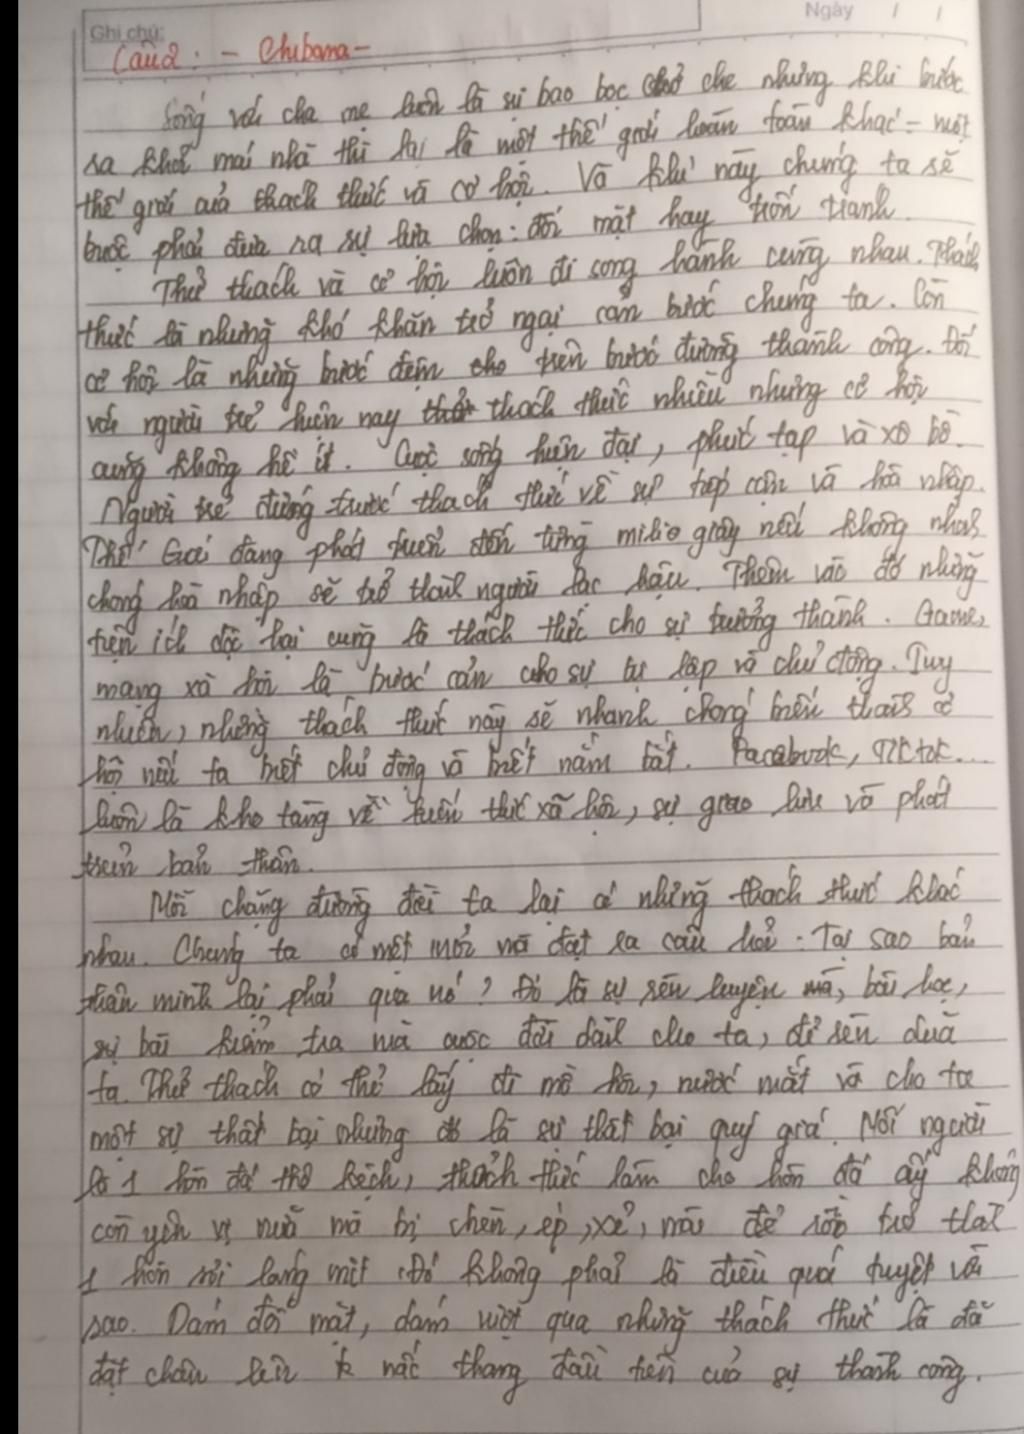 Ghi chú: Ngày / /
Câu 2: - Chibana -
Sống với cha mẹ luôn là sự bao bọc chở che nhưng khi bước
ra khỏi mái nhà thì lại là một thế giới hoàn toàn khác - một
thế giới của thách thức và cơ hội. Và khi này chúng ta sẽ
buộc phải đưa ra sự lựa chọn: đối mặt hay trốn tránh.
Thử thách và cơ hội luôn đi song hành cùng nhau. Thách
thức là những khó khăn trở ngại cản bước chúng ta. Còn
cơ hội là những bước đệm cho trên bước đường thành công. Đối
với người trẻ hiện nay thách thức nhiều nhưng cơ hội
cũng không hề ít. Cuộc sống hiện đại, phức tạp và xô bồ.
Người trẻ đứng trước thách thức về sự tiếp cận và hòa nhập.
Thế Giới đang phát triển đến từng milio giây nếu không nhanh
chóng hòa nhập sẽ trở thành người lạc hậu. Thêm vào đó những
tiện ích độc hại cũng là thách thức cho sự trưởng thành. Game,
mạng xã hội là bước cản cho sự tự lập và chủ động. Tuy
nhiên, những thách thức này sẽ nhanh chóng biến thành cơ
hội nếu ta biết chủ động và biết nắm bắt. Facebook, Tiktok...
luôn là kho tàng về kiến thức xã hội, sự giao lưu và phát
triển bản thân.
Mỗi chặng đường đời ta lại có những thách thức khác
nhau. Chúng ta có mệt mỏi mà đặt ra câu hỏi: Tại sao bản
thân mình lại phải qua nó? Đó là sự rèn luyện mà, bài học,
sự bài kiểm tra mà cuộc đời dành cho ta, để rèn dũa
ta. Thử thách có thể lấy đi mồ hôi, nước mắt và cho ta
một sự thất bại nhưng đó là sự thất bại quý giá. Mỗi người
là 1 hòn đá thô kệch, thách thức làm cho hòn đá ấy không
còn yên vị nữa mà bị chèn, ép, xẻ, mài để rồi trở thành
1 hòn sỏi láng mịt. Đó không phải là điều quá tuyệt vời
sao. Dám đối mặt, dám vượt qua những thách thức là đã
đặt chân lên nấc thang đầu tiên của sự thành công.